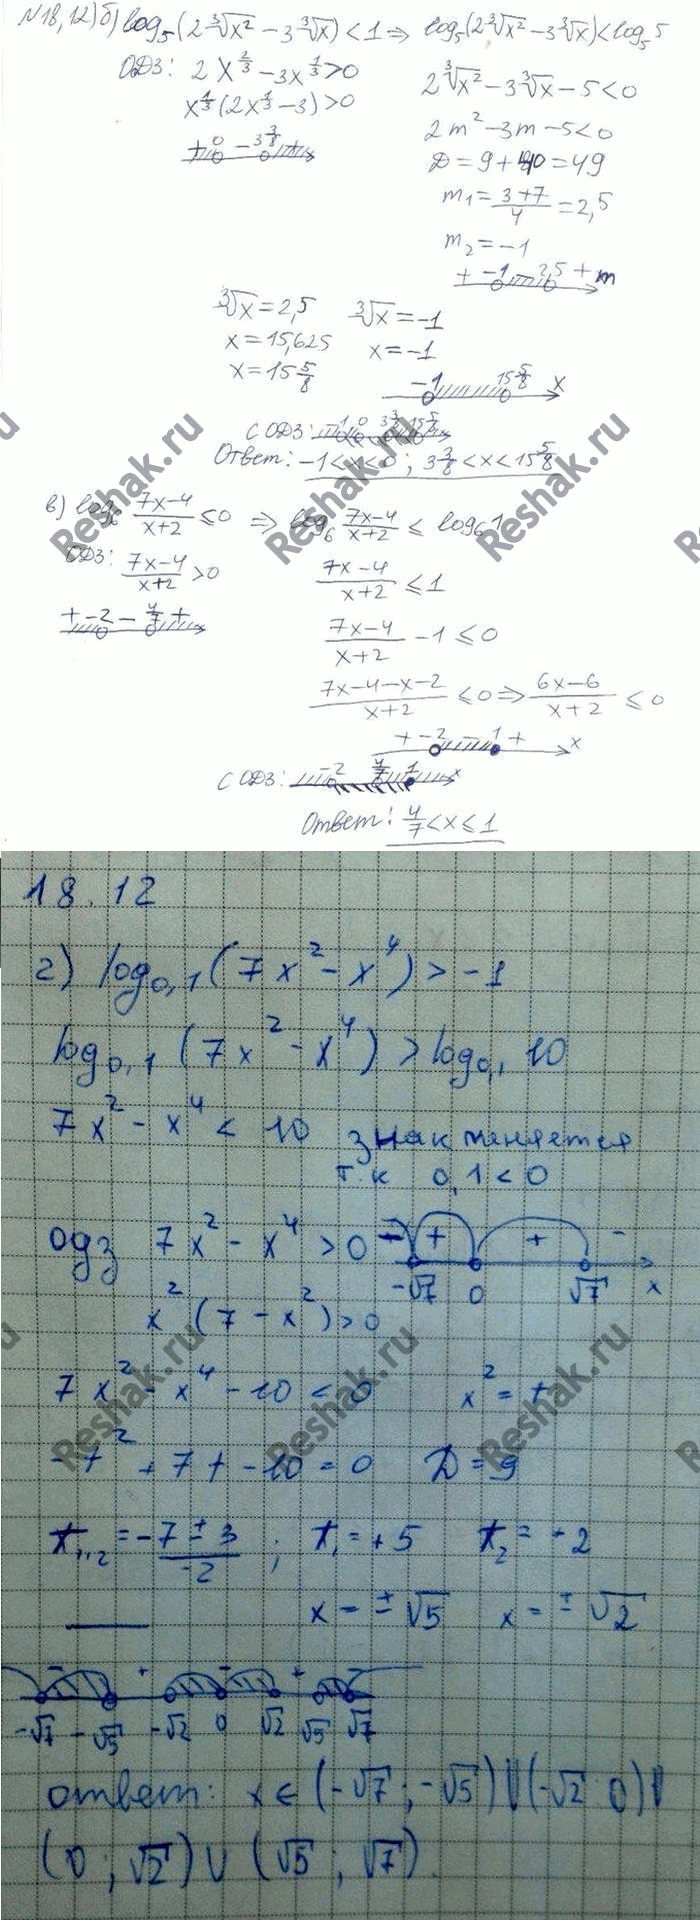 №18,12) б) log₅(2∛x² − 3∛x) < 1 ⇒ log₅(2∛x² − 3∛x) < log₅5
ОДЗ: 2x^(2/3) − 3x^(1/3) > 0
2∛x² − 3∛x − 5 < 0
x^(1/3)(2x^(1/3) − 3) > 0
2m² − 3m − 5 < 0
+ 0 − 3 3/8 +
D = 9 + 40 = 49
m₁ = (3+7)/4 = 2,5
m₂ = −1
+ −1 − 2,5 + m
∛x = 2,5 ∛x = −1
x = 15,625 x = −1
x = 15 5/8
−1 15 5/8 x
С ОДЗ: −1 0 3 3/8 15 5/8
Ответ: −1 < x < 0 ; 3 3/8 < x < 15 5/8
в) log₆ (7x−4)/(x+2) ≤ 0 ⇒ log₆ (7x−4)/(x+2) ≤ log₆1
ОДЗ: (7x−4)/(x+2) > 0
(7x−4)/(x+2) ≤ 1
+ −2 − 4/7 +
(7x−4)/(x+2) − 1 ≤ 0
(7x−4−x−2)/(x+2) ≤ 0 ⇒ (6x−6)/(x+2) ≤ 0
+ −2 − 1 + x
С ОДЗ: −2 4/7 1 x
Ответ: 4/7 < x ≤ 1
18.12
г) log₀,₁(7x² − x⁴) > −1
log₀,₁(7x² − x⁴) > log₀,₁ 10
7x² − x⁴ < 10 знак меняется
т.к 0,1 < 0
одз 7x² − x⁴ > 0 − + + −
−√7 0 √7 x
x²(7 − x²) > 0
7x² − x⁴ − 10 < 0 x² = t
−t² + 7t − 10 = 0 D = 9
t₁,₂ = (−7 ± 3)/−2 ; t₁ = +5 t₂ = +2
x = ±√5 x = ±√2
− + − + −
−√7 −√5 −√2 0 √2 √5 √7
ответ: x ∈ (−√7 ; −√5) U (−√2 0) U
(0 ; √2) U (√5 ; √7)
Reshak.ru
Reshak.ru
Reshak.ru
Reshak.ru
Reshak.ru
Reshak.ru